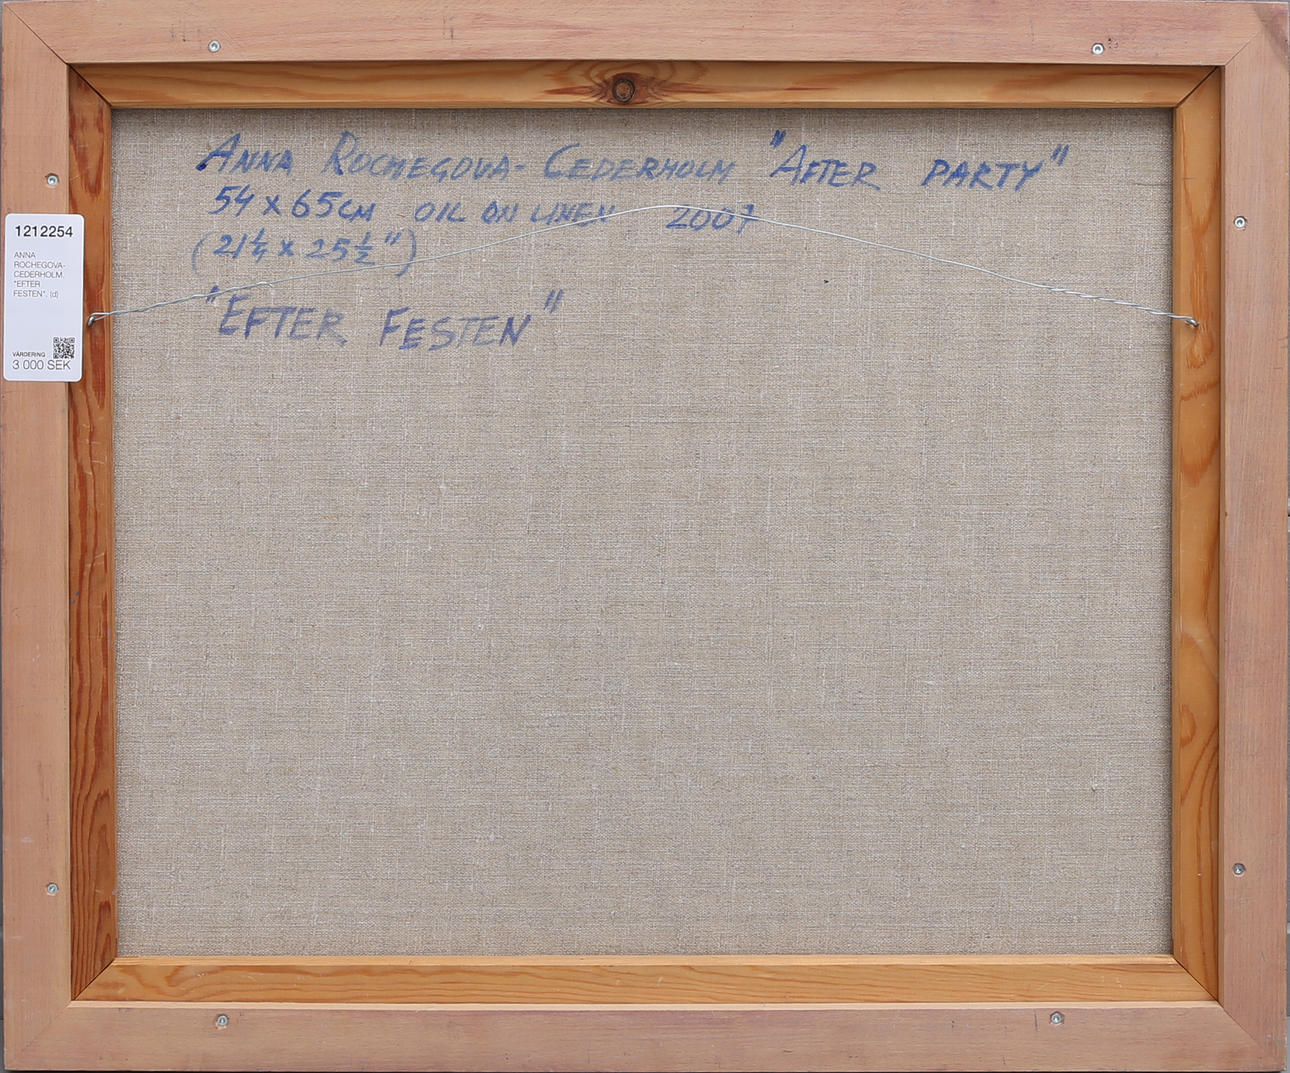 ANNA ROCHEGOVA-CEDERHOLM "AFTER PARTY"
54 x 65 CM OIL ON LINEN 2007
(21 1/4 x 25 1/2")
"EFTER FESTEN"
1212254
ANNA
ROCHEGOVA-
CEDERHOLM.
"EFTER
FESTEN". (d)
VÄRDERING
3 000 SEK